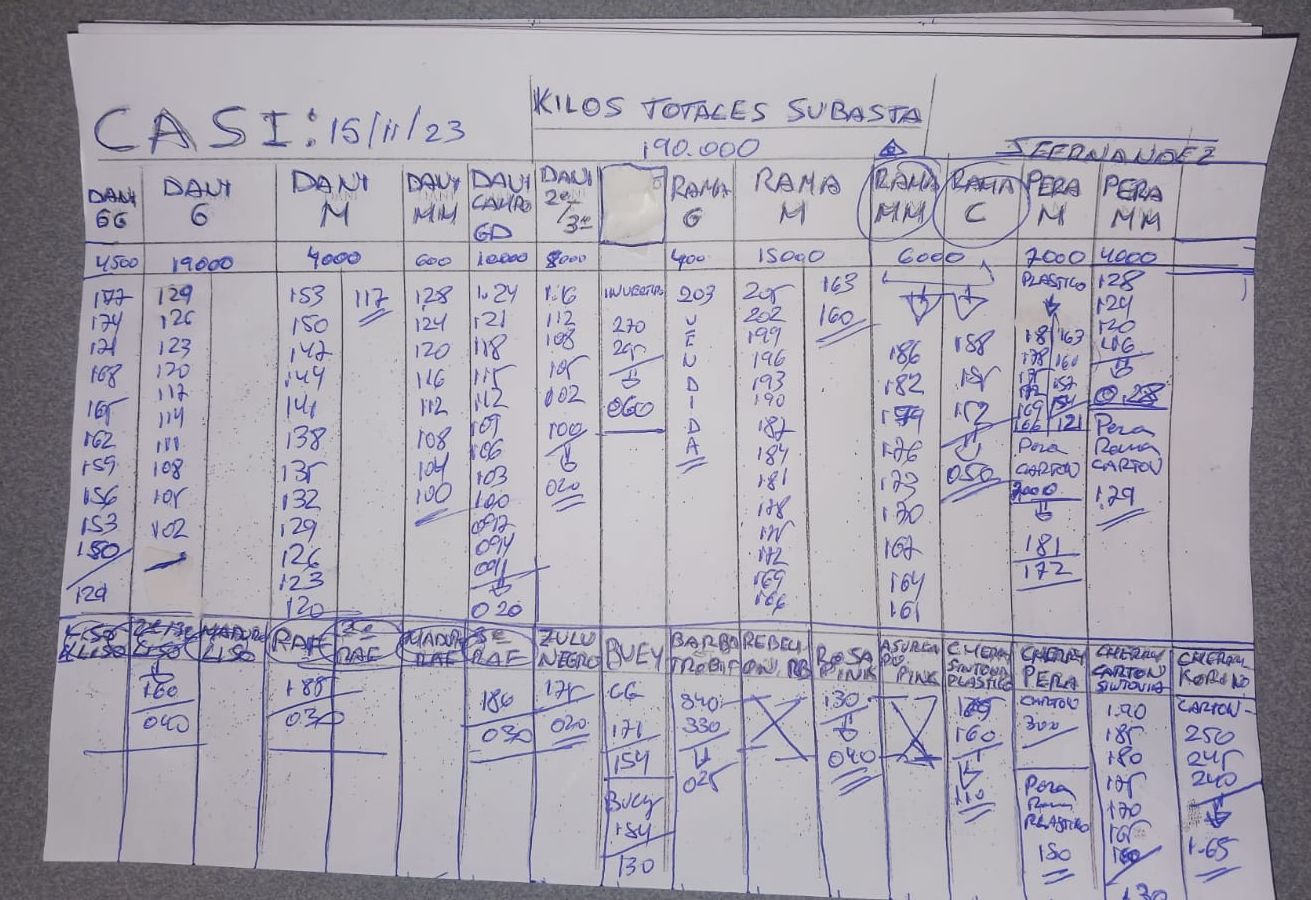 CASI: 15/11/23
KILOS TOTALES SUBASTA
190.000
JFERNANDEZ
DANI GG
DANI G
DANI M
DANI MM
DANI CAMPO GD
DANI 2ª/3ª
RAMA G
RAMA M
RAMA MM
RAMA C
PERA M
PERA MM
4500
19000
4000
600
10000
8000
400
15000
6000
7000
4000
177
174
171
168
165
162
159
156
153
150
129
126
123
120
117
114
111
108
105
102
153
150
147
144
141
138
135
132
129
126
123
120
117
128
124
120
116
112
108
104
100
1.24
121
118
115
112
109
106
103
100
097
094
091
020
116
112
108
105
102
100
020
270
265
060
203
VENDIDA
205
202
199
196
193
190
187
184
181
178
175
172
169
166
163
160
186
182
179
176
173
170
167
164
161
188
185
172
050
PLASTICO
181 163
178 160
175 157
172 154
169
166 121
Pera
CARTON
2000
181
172
128
124
120
116
0.28
Pera
Rama
CARTON
179
LISO
MADURO LISO
RAF
2ª RAF
MADURO RAF
3ª RAF
ZULU NEGRO
BUEY
BARBA
REBELION
ROSA PINK
PINK
CHERRY SINTONIA PLASTICO
CHERRY PERA
CHERRY CARTON SINTONIA
CHERRY KOROKO
160
040
188
030
186
030
175
020
GG
171
154
Buey
184
130
840
330
025
130
040
160
110
CARTON
300
Pera
Rama
PLASTICO
180
1.90
185
180
175
170
165
160
130
CARTON
250
245
240
1.65